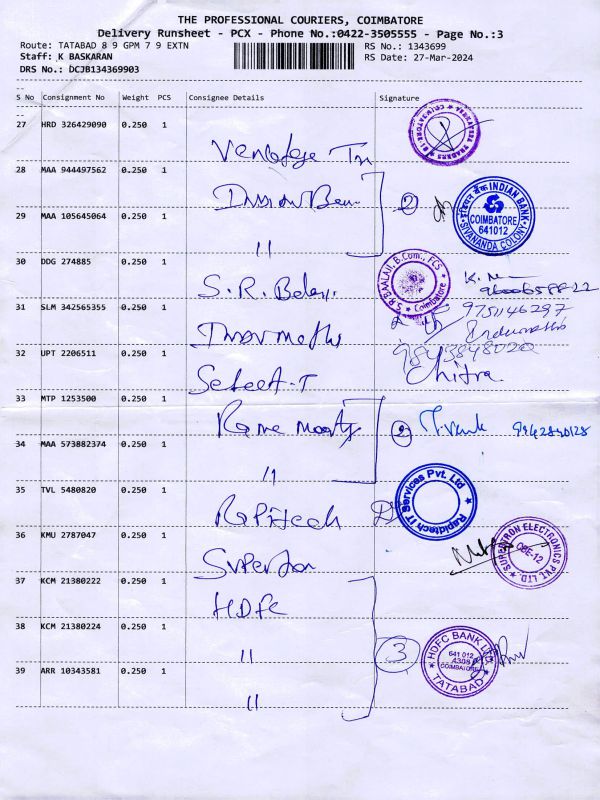 THE PROFESSIONAL COURIERS, COIMBATORE
Delivery Runsheet - PCX - Phone No.:0422-3505555 - Page No.:3
Route: TATABAD 8 9 GPM 7 9 EXTN
RS No.: 1343699
Staff: K BASKARAN
RS Date: 27-Mar-2024
DRS No.: DCJB134369903
S No Consignment No Weight PCS Consignee Details Signature
27 HRD 326429090 0.250 1
28 MAA 944497562 0.250 1
2
INDIAN BANK
COIMBATORE
641012
SIVANANDA COLONY
29 MAA 105645064 0.250 1
"
30 DDG 274885 0.250 1
S.R.
S R BAALAJI, B.Com., FCS
Coimbatore
31 SLM 342565355 0.250 1
9751146297
Indumathi
32 UPT 2206511 0.250 1
9843848020
Chitra
33 MTP 1253500 0.250 1
2
34 MAA 573882374 0.250 1
"
35 TVL 5480820 0.250 1
Rapitech
Rapidtech IT Services Pvt. Ltd
36 KMU 2787047 0.250 1
SUPERTRON ELECTRONICS PVT. LTD.
CBE-12
37 KCM 21380222 0.250 1
HDFC
38 KCM 21380224 0.250 1
"
3
HDFC BANK LTD
641 012
4308
COIMBATORE
TATABAD
39 ARR 10343581 0.250 1
"